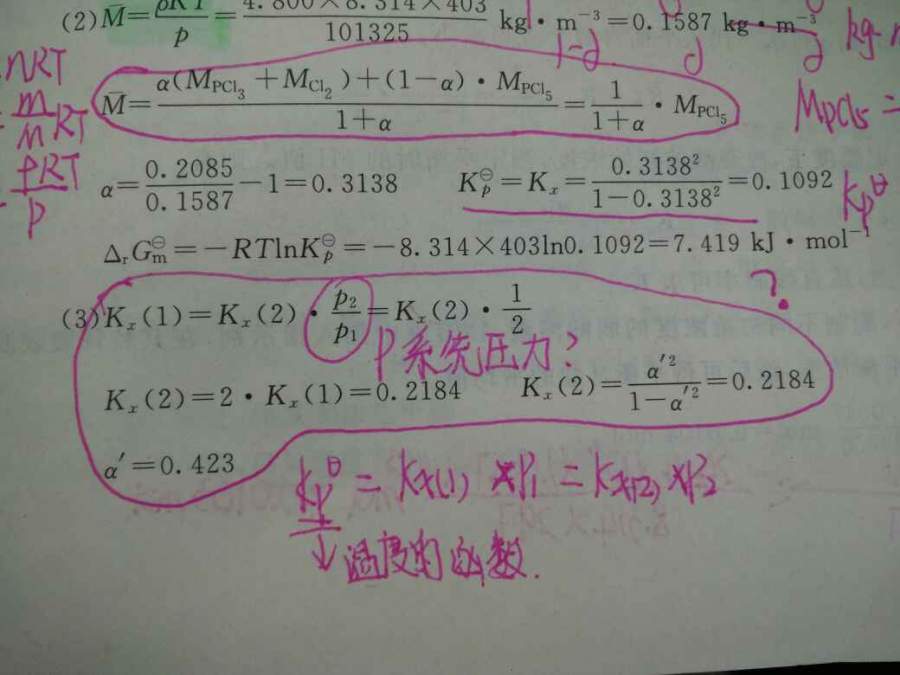 (2) M̄ = ρRT/p = 4.800×8.314×403/101325 kg·m⁻³ = 0.1587 kg·m⁻³
nRT
m/M RT
ρRT/p
1-α
α
α
M̄ = [α(M_PCl₃ + M_Cl₂) + (1-α)·M_PCl₅]/(1+α) = 1/(1+α)·M_PCl₅
M_PCl5 =
α = 0.2085/0.1587 - 1 = 0.3138 K_p^⊖ = K_x = 0.3138²/(1-0.3138²) = 0.1092
K_p^⊖
Δ_rG_m^⊖ = -RTlnK_p^⊖ = -8.314×403ln0.1092 = 7.419 kJ·mol⁻¹
?
(3) K_x(1) = K_x(2)·p₂/p₁ = K_x(2)·1/2
P系统压力?
K_x(2) = 2·K_x(1) = 0.2184 K_x(2) = α′²/(1-α′²) = 0.2184
α′ = 0.423
K_p^⊖ = K_x(1) ×P₁ = K_x(2) ×P₂
↓温度的函数.